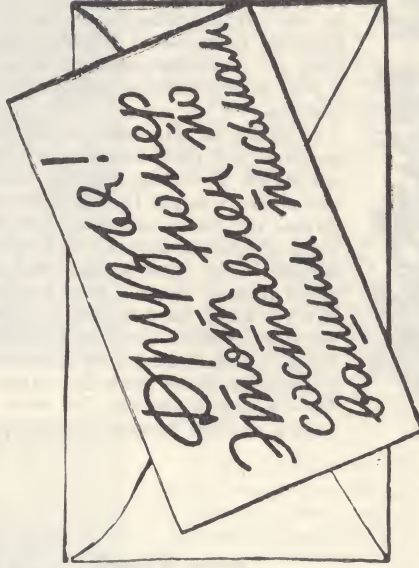 Друзья!
Этот номер
составлен по
вашим письмам